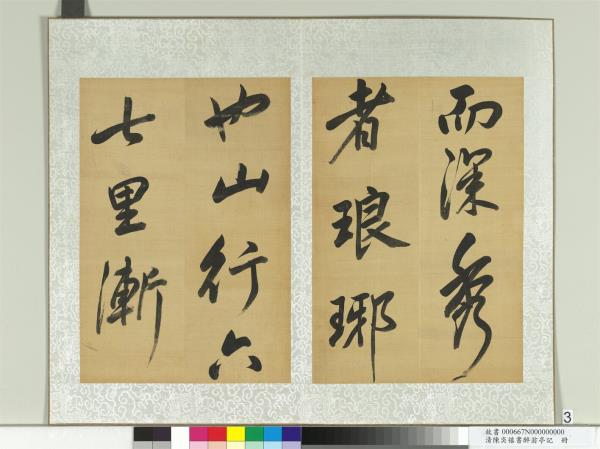 而深秀
者琅琊
也山行六
七里漸
3
故書000667N000000000
清陳奕禧書醉翁亭記 冊